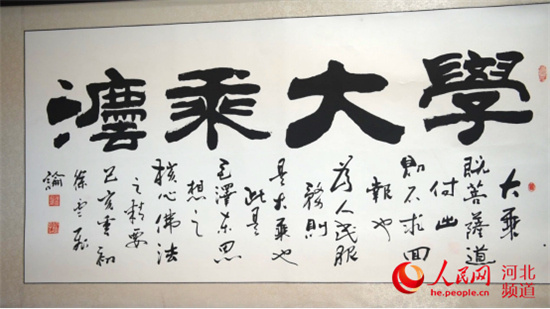 學大乘灋
大乘
既菩薩道
付出
則不求回
報也
為人民服
務則
是大乘也
此是
毛澤東思
想之
核心佛法
之精要
己亥
徐雲
人民网 河北
he.people.cn 频道